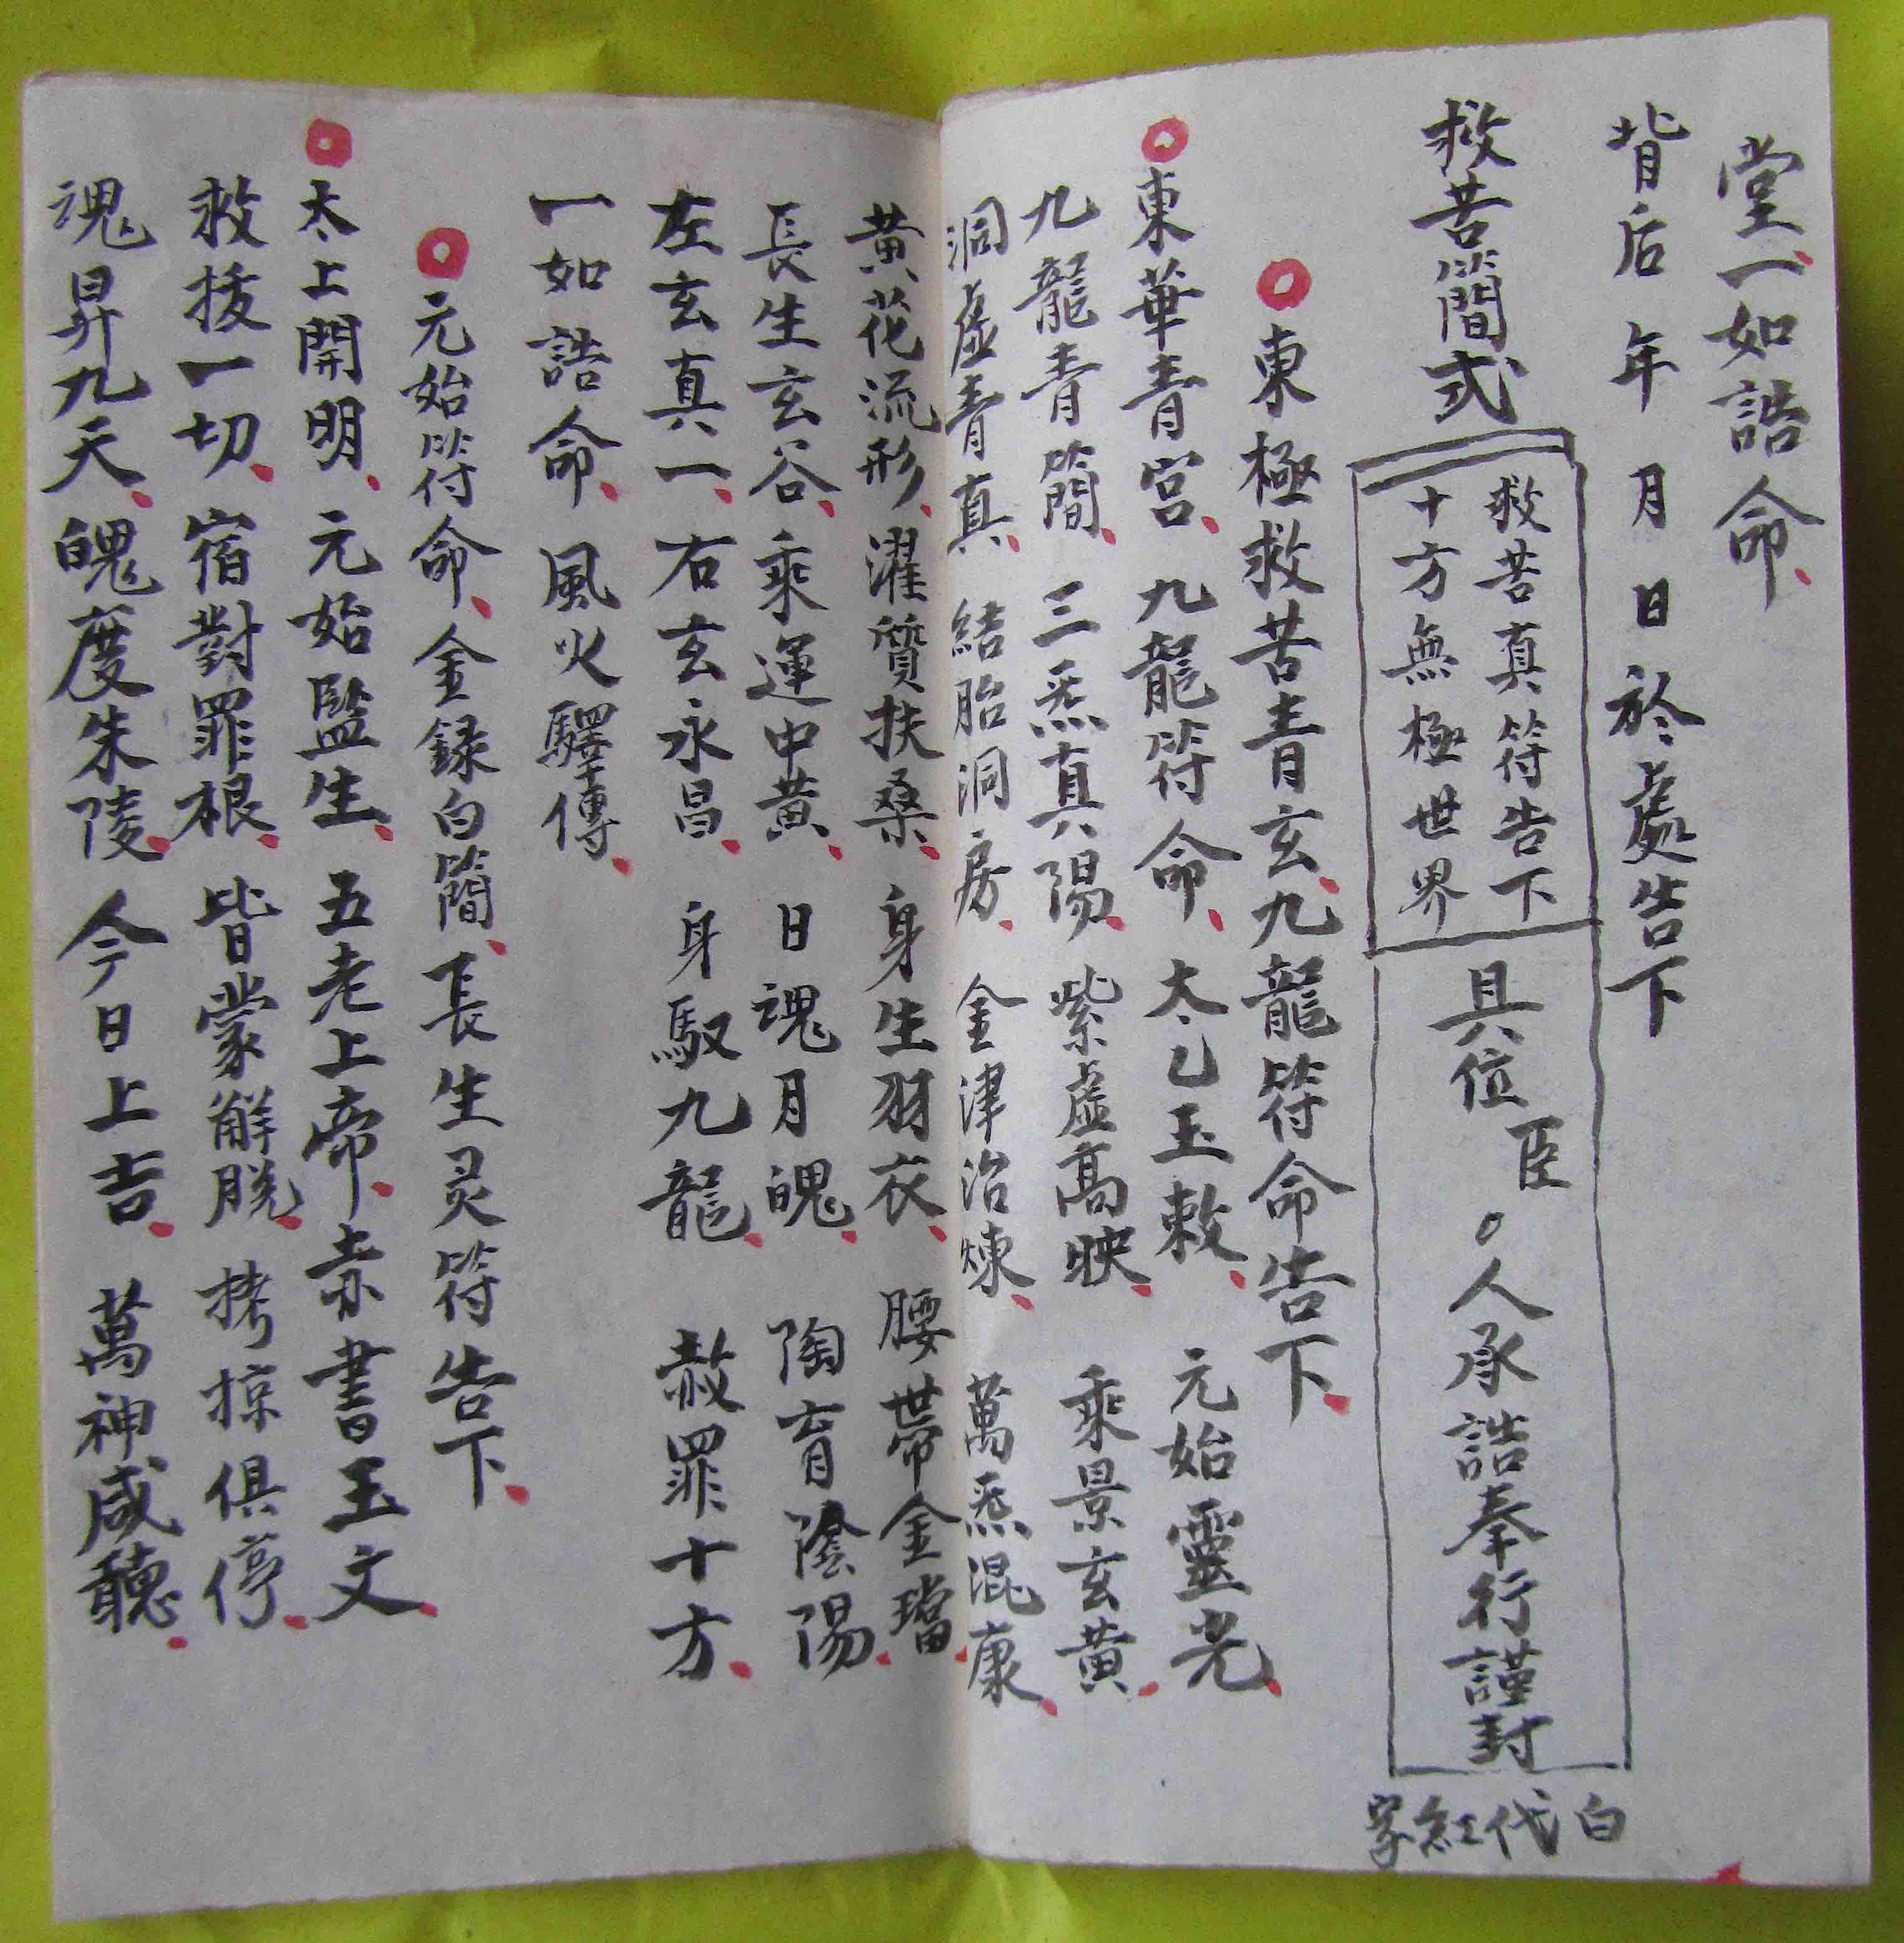 堂一如誥命、
背后 年 月 日於處告下
救苦簡式
救苦真符告下
十方無極世界
具位 臣 〇人承誥奉行謹封
白代紅字
東極救苦青玄、九龍符命告下、
東華青宮、九龍符命、太乙玉敕、元始靈光、
九龍青簡、三炁真陽、紫虛高映、乘景玄黃、
洞虛青真、結胎洞房、金津治煉、萬炁混康、
黃花流形、濯質扶桑、身生羽衣、腰帶金璫、
長生玄谷、乘運中黃、日魂月魄、陶育陰陽、
左玄真一、右玄永昌、身馭九龍、赦罪十方、
一如誥命、風火驛傳、
元始符命、金録白簡、長生灵符告下、
太上開明、元始監生、五老上帝、赤書玉文、
救拔一切、宿對罪根、皆蒙解脱、拷掠俱停、
魂昇九天、魄度朱陵、今日上吉、萬神咸聽、